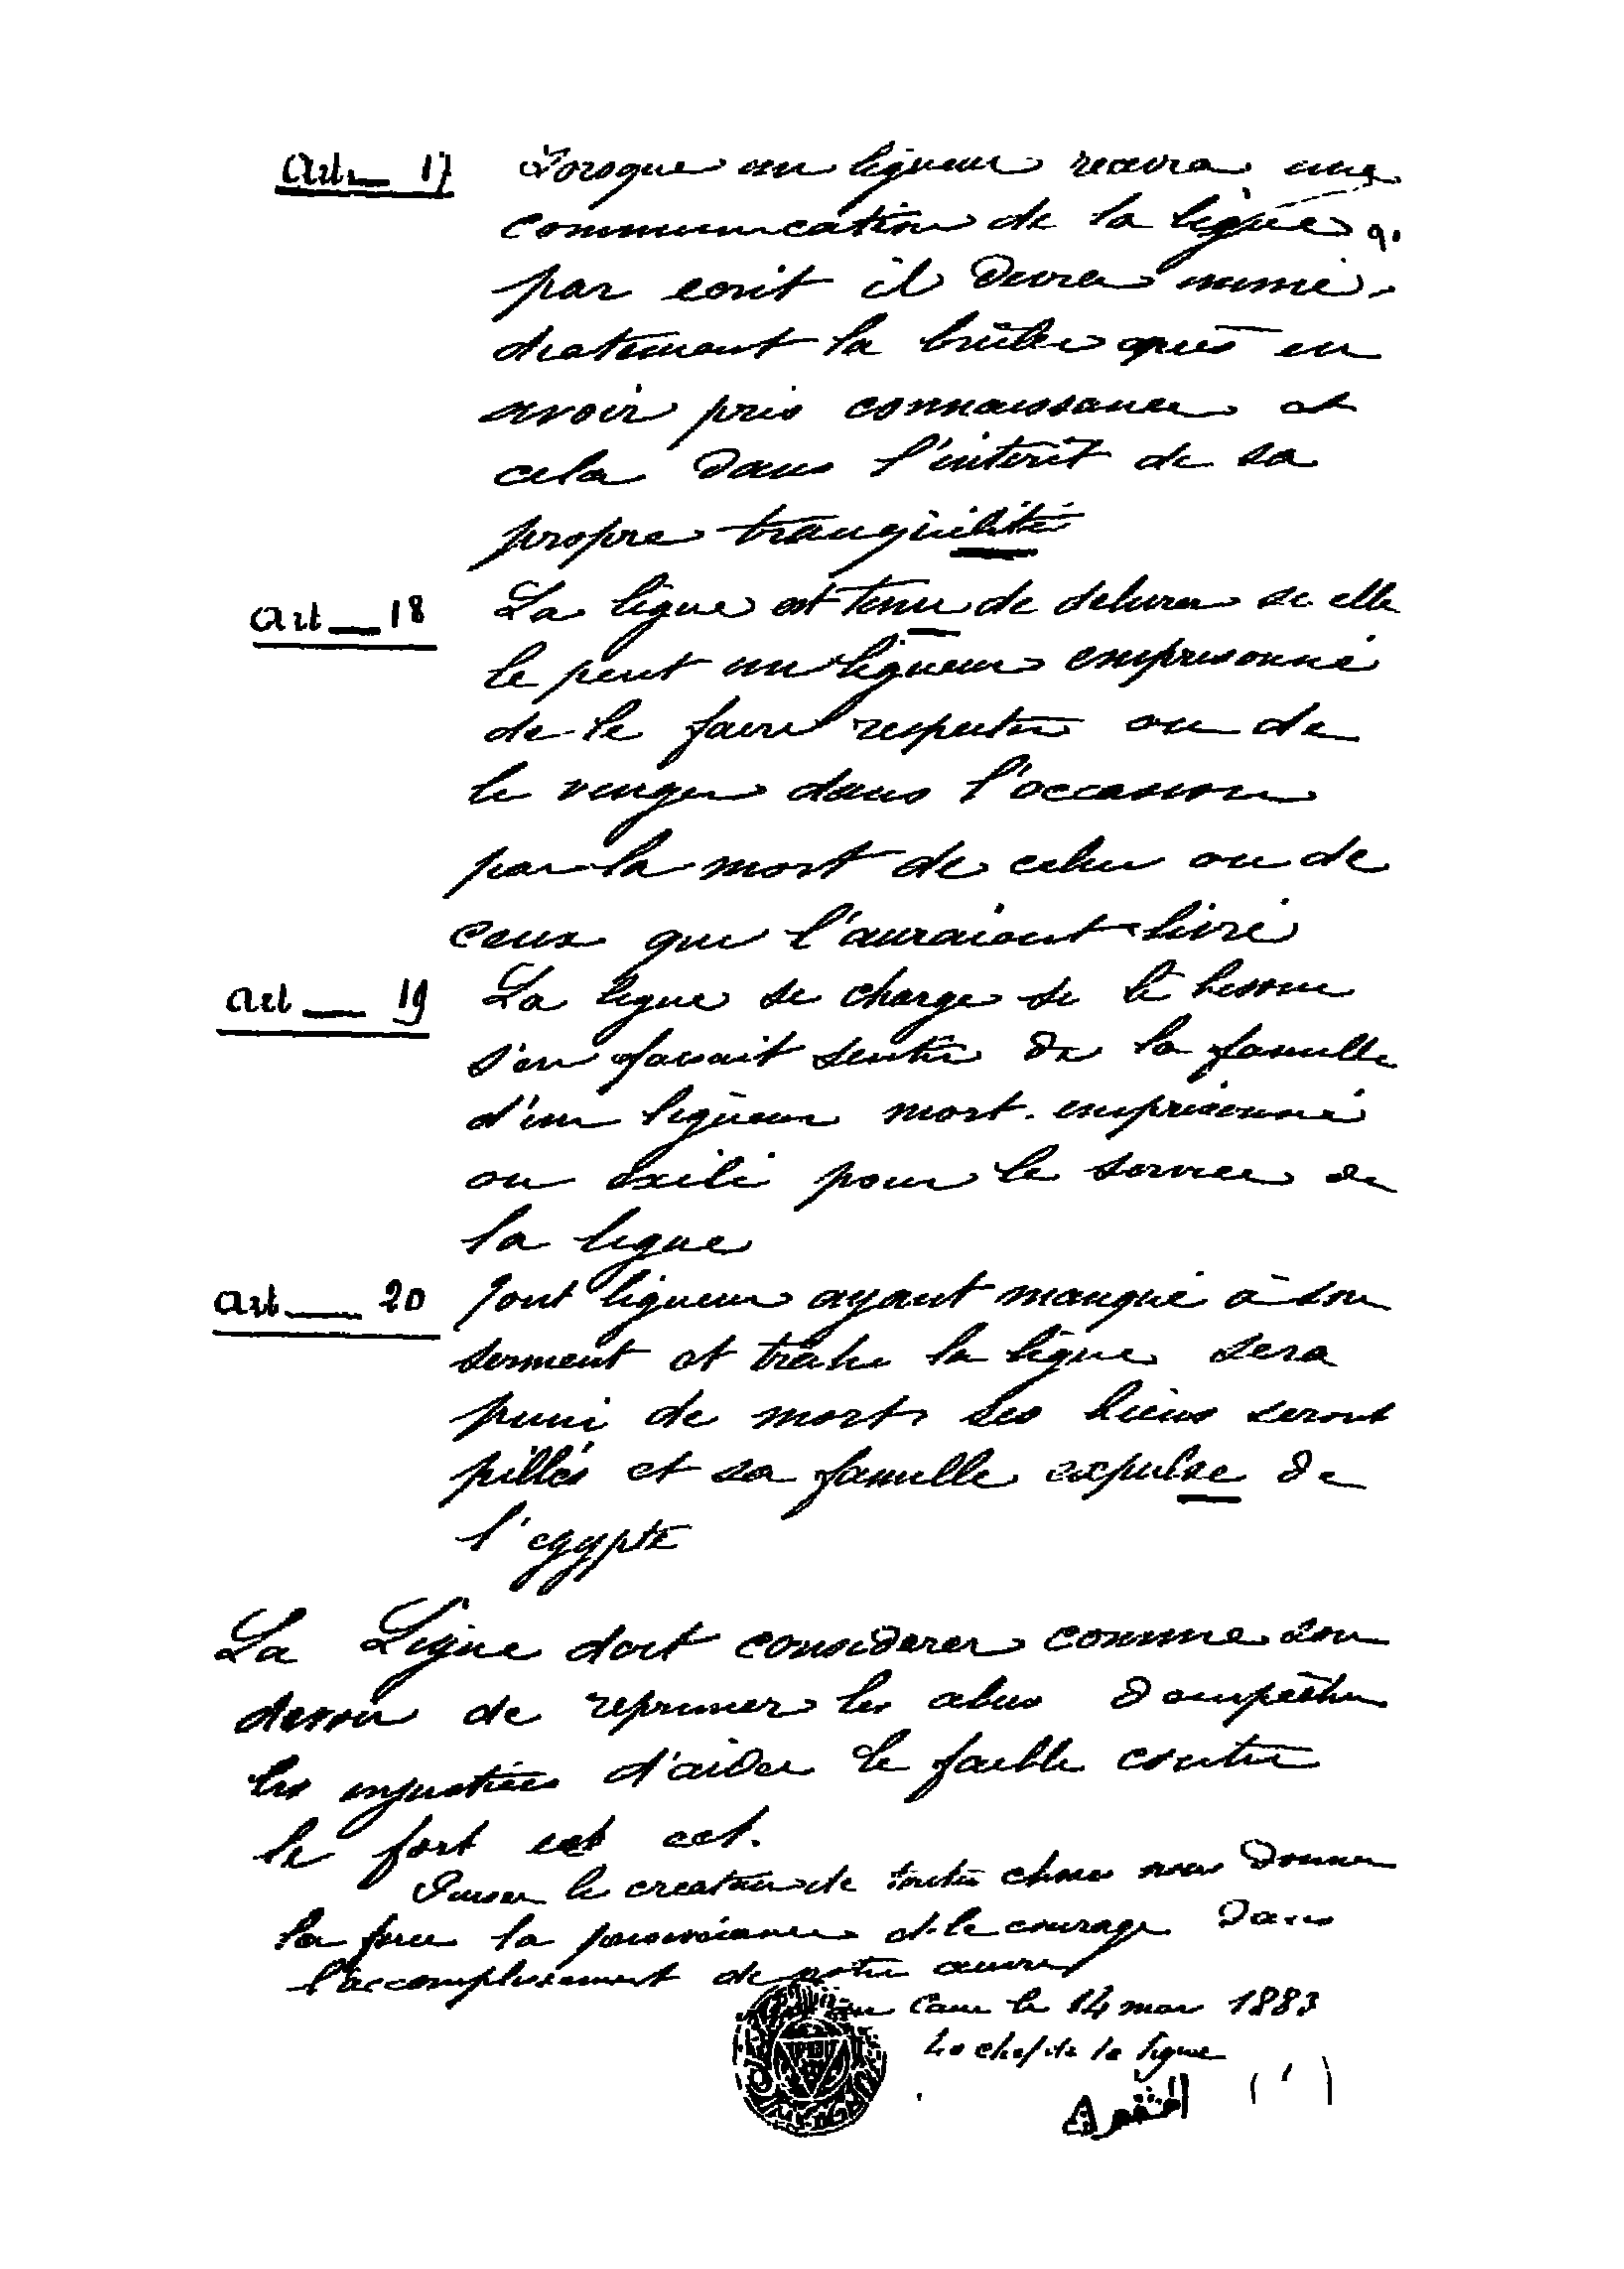 Art 17 Lorsque un ligueur recevra une
communication de la ligue
par ecrit il devra immé-
diatement la brûler après en
avoir pris connaissance et
cela dans l'interêt de sa
propre tranquilité
Art 18 La ligue est tenu de delivrer si elle
le peut un ligueur emprisonné
de le faire respecter ou de
le venger dans l'occasion
par la mort de celui ou de
ceux qui l'auraient livré
Art 19 La ligue se charge si le besoin
s'en faisait sentir de la famille
d'un ligueur mort. emprisonné
ou exilé pour le service de
la ligue
Art 20 Tout ligueur ayant manqué à son
serment et trahi la ligue sera
puni de mort ses biens seront
pillés et sa famille expulse de
l'egypte
La Ligue doit considerer comme son
devoir de reprimer les abus d'empêcher
les injustices d'aider le faible contre
le fort ect ect.
Puisse le createur de toute chose nous donner
la force la et le courage dans
l'accomplissement de notre œuvre
au Caire le 14 mai 1883
Le chef de la ligue